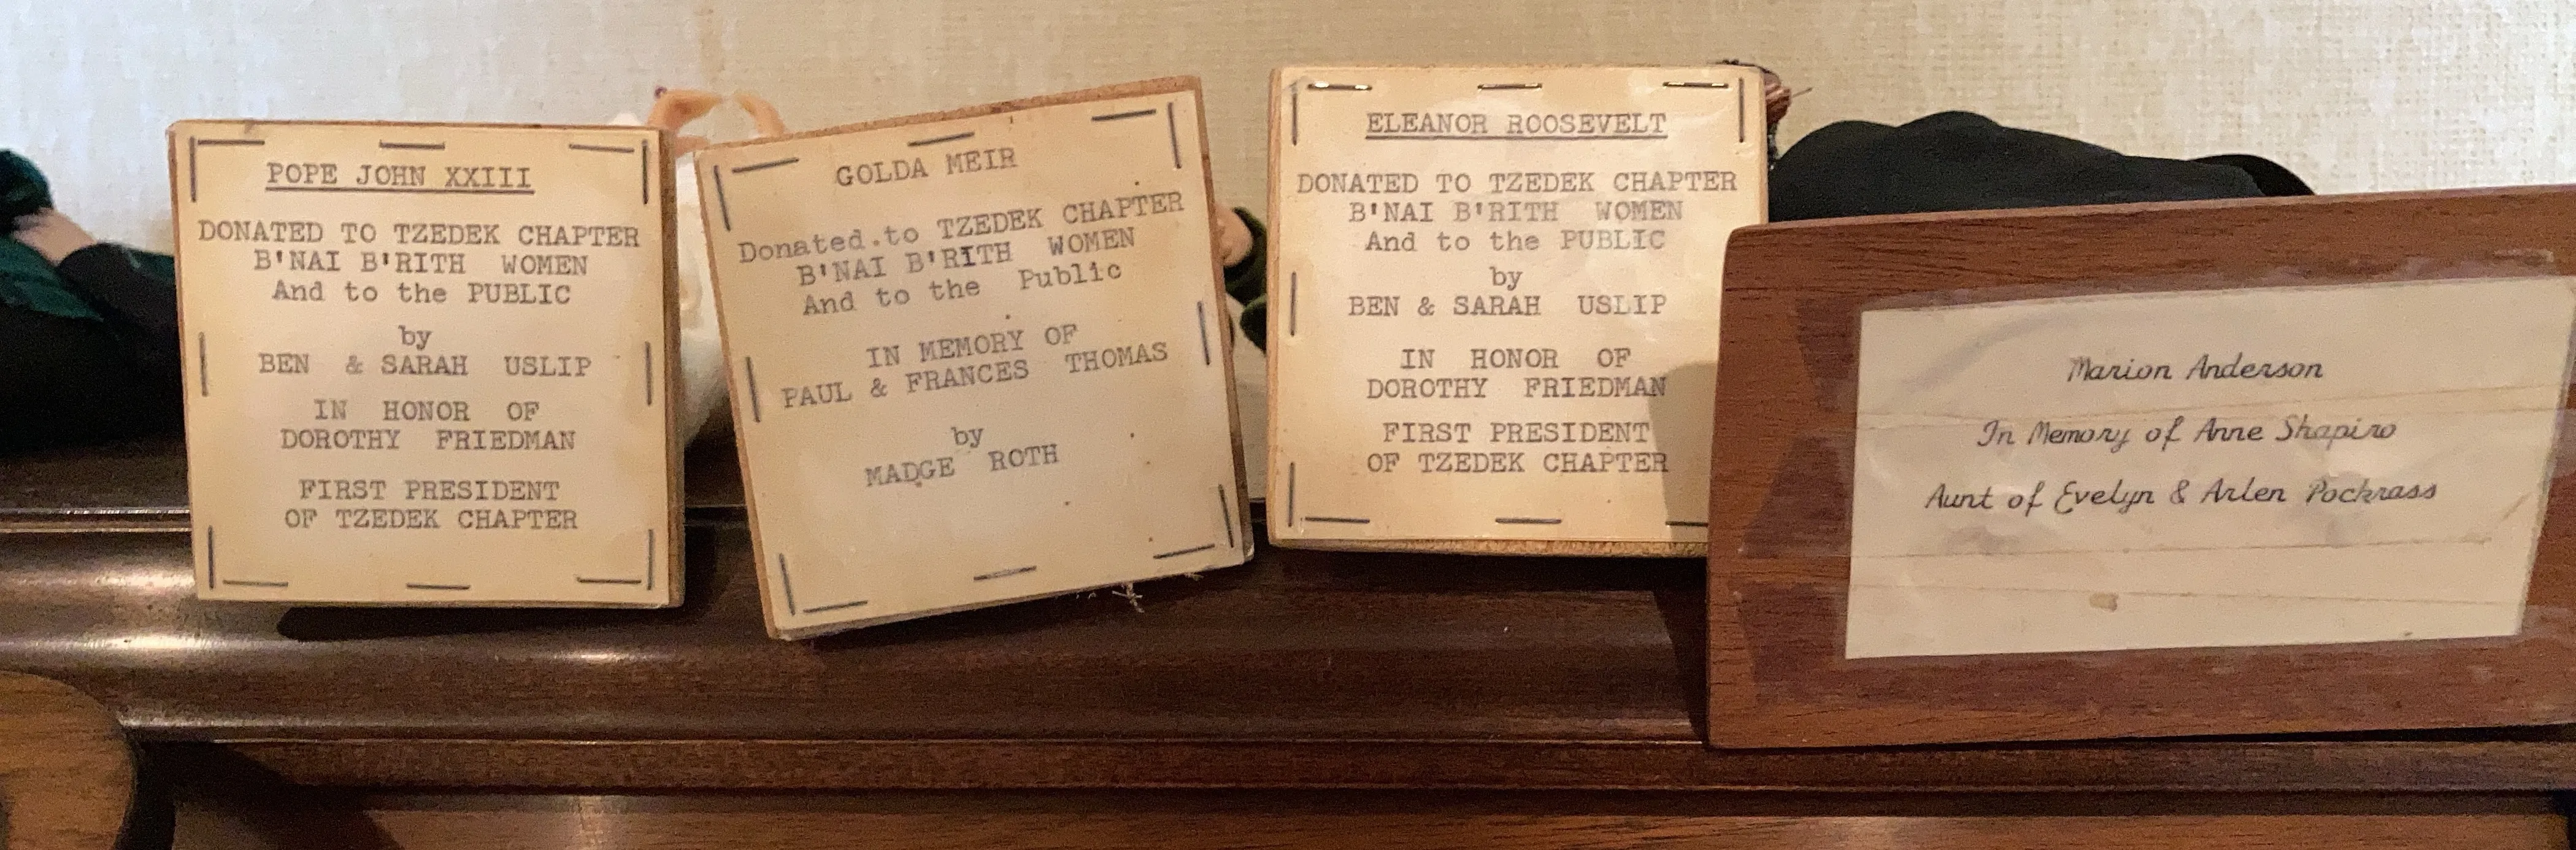 POPE JOHN XXIII
DONATED TO TZEDEK CHAPTER
B'NAI B'RITH WOMEN
And to the PUBLIC
by
BEN & SARAH USLIP
IN HONOR OF
DOROTHY FRIEDMAN
FIRST PRESIDENT
OF TZEDEK CHAPTER
GOLDA MEIR
Donated.to TZEDEK CHAPTER
B'NAI B'RITH WOMEN
And to the Public
IN MEMORY OF
PAUL & FRANCES THOMAS
by
MADGE ROTH
ELEANOR ROOSEVELT
DONATED TO TZEDEK CHAPTER
B'NAI B'RITH WOMEN
And to the PUBLIC
by
BEN & SARAH USLIP
IN HONOR OF
DOROTHY FRIEDMAN
FIRST PRESIDENT
OF TZEDEK CHAPTER
Marion Anderson
In Memory of Anne Shapiro
Aunt of Evelyn & Arlen Pockrass